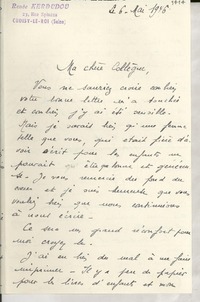 Renée KERDUDOU
CHOISY-LE-ROI (Seine)
Le 6 Mai 1946
Ma chère Collègue,
Vous ne sauriez croire combien
votre bonne lettre m'a touchée
et combien j'y ai été sensible.
Mais je savais bien qu'une femme
telle que vous, qui était faite d'a-
voir écrit pour les enfants ne
pouvait être que bonne et géné-
reuse. Je vous remercie du fond du
coeur et je suis heureuse que vous
vouliez bien que nous continuions
à nous écrire.
Ce sera un grand réconfort pour
moi croyez-le.
J'ai eu bien du mal à me faire
imprimer - Il y a peu de papier
pour les livres d'enfants et mon